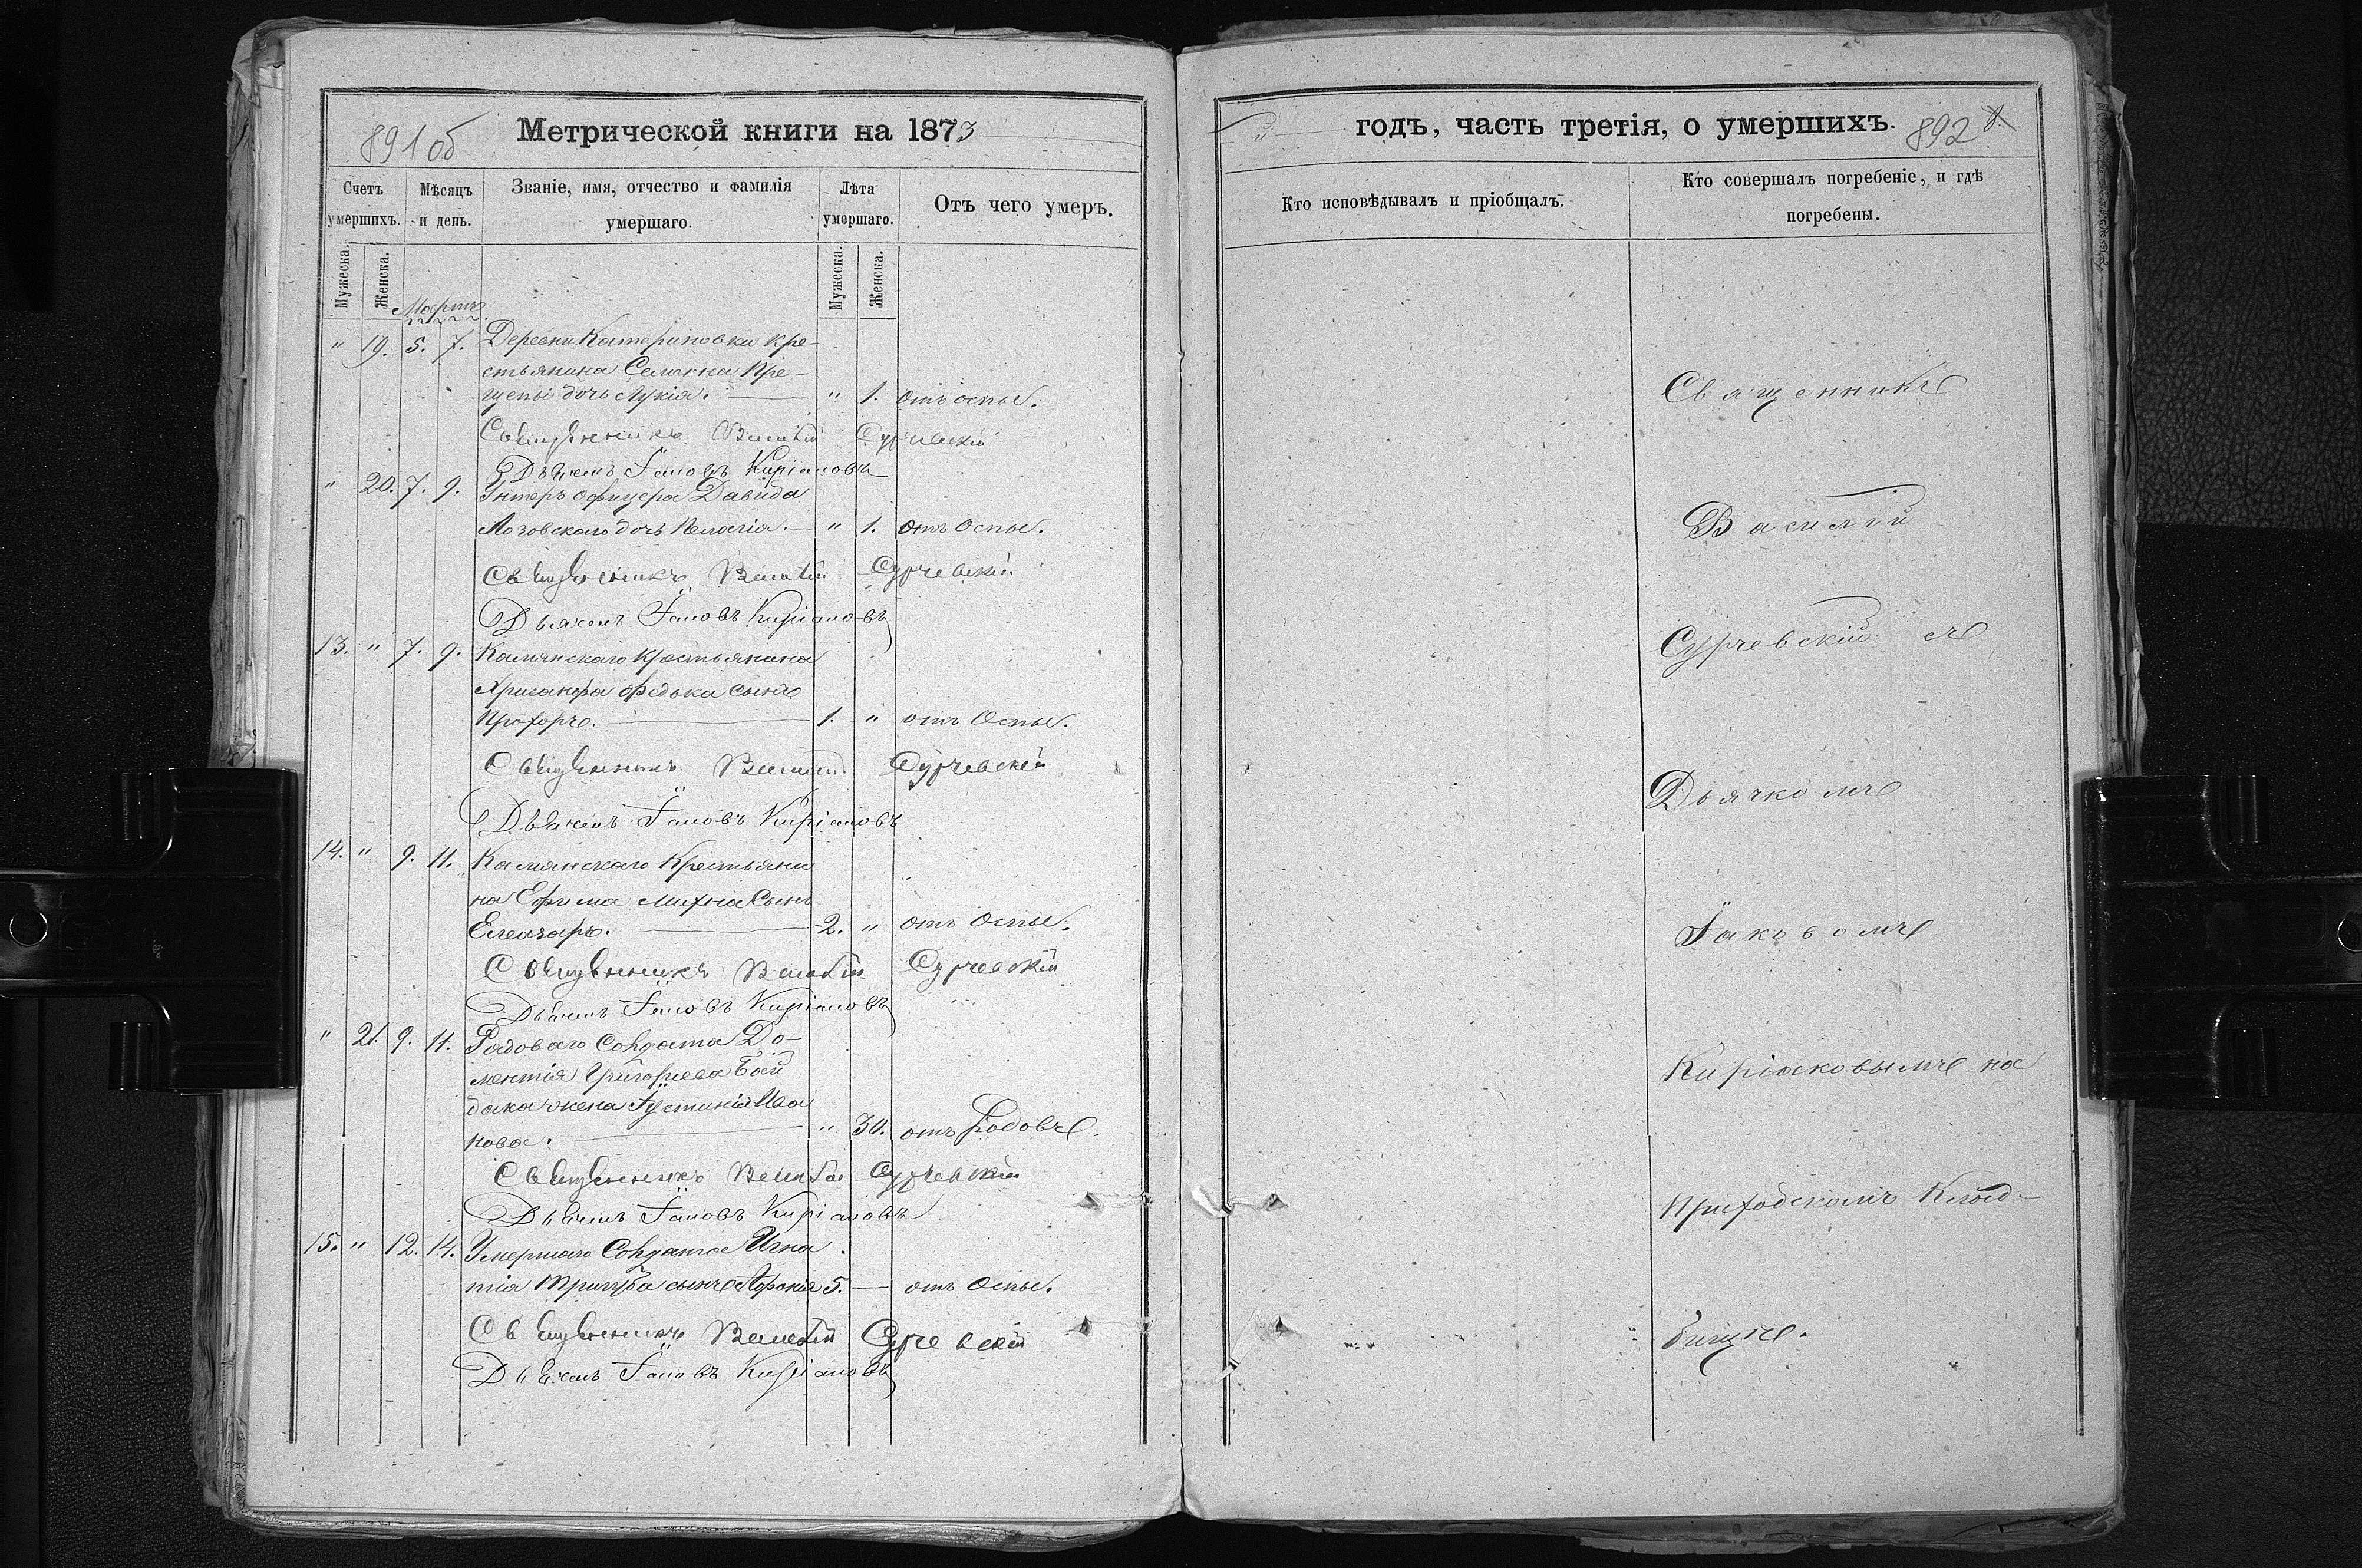 891об
Метрической книги на 1873
Счетъ умершихъ. Мѣсяцъ и день. Званіе, имя, отчество и фамилія умершаго. Лѣта умершаго. Отъ чего умеръ.
Мужеска. Женска. Мужеска. Женска.
Мартъ
" 19. 5. 7. Деревни Катериновки кре-
стьянина Семена Пре-
дочь Лукія. " 1. отъ оспы.
Священникъ Василій Сурчевскій
Дьячекъ Іаковъ Киріаковъ
" 20. 7. 9. Унтеръ офицера Давида
Лозовскаго дочь Пелагія. " 1. отъ Оспы.
Священникъ Василій Сурчевскій
Дьячекъ Іаковъ Киріаковъ
13. " 7. 9. Камянскаго крестьянина
Хрисанфа Федька сынъ
Прохоръ. 1. " отъ Оспы.
Священникъ Василій Сурчевскій
Дьячекъ Іаковъ Киріаковъ
14. " 9. 11. Камянскаго Крестьяни
на Ефима Михна Сынъ
Елеазаръ. 2. " отъ Оспы.
Священникъ Василій Сурчевскій
Дьячекъ Іаковъ Киріаковъ
" 21. 9. 11. Рядоваго Солдата До-
ментія Григорьева Бай
дака жена Іустинія Ива
нова. " 30. отъ Родовъ.
Священникъ Василій Сурчевскій
Дьячекъ Іаковъ Киріаковъ
15. " 12. 14. Умершаго Солдата Игна
тія Тригуба сынъ 5. — отъ Оспы.
Священникъ Василій Сурчевскій
Дьячекъ Іаковъ Киріаковъ
й годъ, часть третія, о умершихъ. 892
Кто исповѣдывалъ и пріобщалъ. Кто совершалъ погребеніе, и гдѣ погребены.
Священникъ
Василій
Сурчевскій съ
Дьячкомъ
Іаковомъ
Киріаковымъ на
Приходскомъ Клад-
бищѣ.